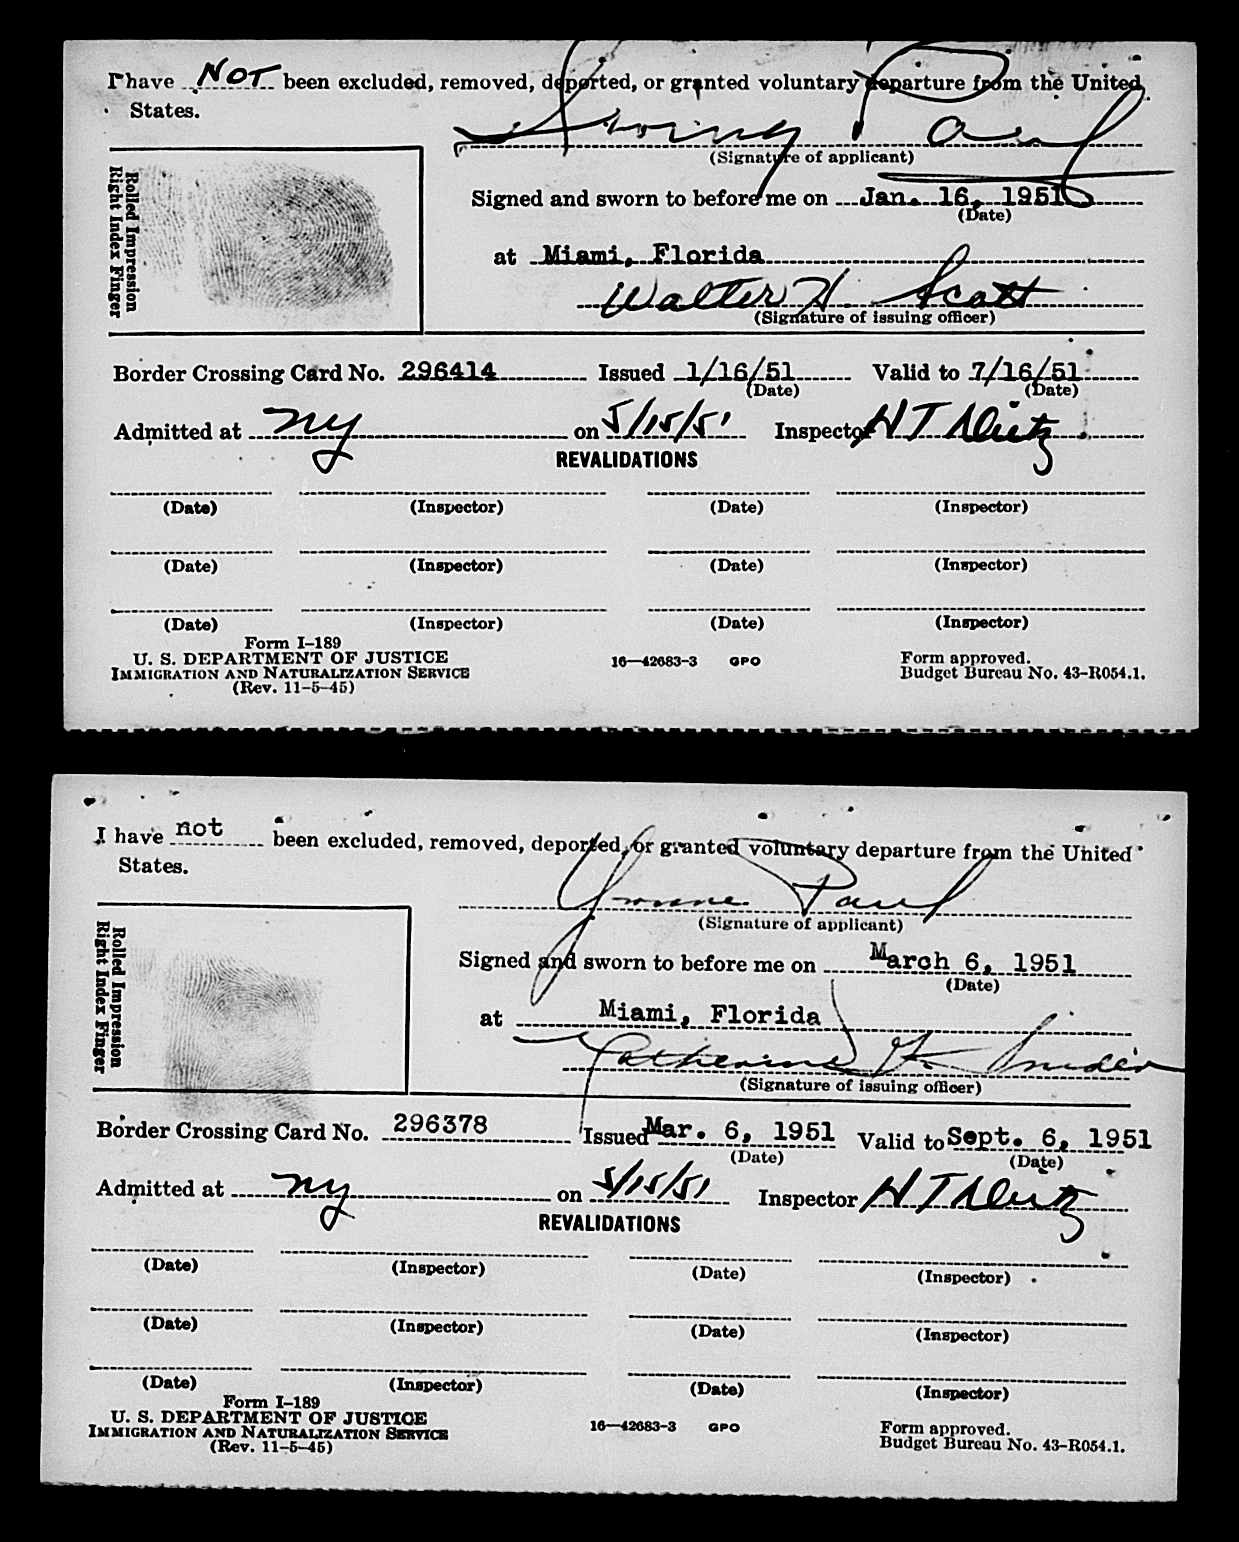 I have NOT been excluded, removed, deported, or granted voluntary departure from the United
States.
Irving Paul
(Signature of applicant)
Rolled Impression
Right Index Finger
Signed and sworn to before me on Jan. 16, 1951
(Date)
at Miami, Florida
Walter H. Scott
(Signature of issuing officer)
Border Crossing Card No. 296414 Issued 1/16/51 Valid to 7/16/51
(Date) (Date)
Admitted at NY on 5/15/51 Inspector H T
REVALIDATIONS
(Date) (Inspector) (Date) (Inspector)
(Date) (Inspector) (Date) (Inspector)
(Date) (Inspector) (Date) (Inspector)
Form I-189
U. S. DEPARTMENT OF JUSTICE
IMMIGRATION AND NATURALIZATION SERVICE
(Rev. 11-5-45)
16—42683-3 GPO
Form approved.
Budget Bureau No. 43-R054.1.
I have not been excluded, removed, deported, or granted voluntary departure from the United
States.
Yvonne Paul
(Signature of applicant)
Rolled Impression
Right Index Finger
Signed and sworn to before me on March 6, 1951
(Date)
at Miami, Florida
Catherine K. Snider
(Signature of issuing officer)
Border Crossing Card No. 296378 Issued Mar. 6, 1951 Valid to Sept. 6, 1951
(Date) (Date)
Admitted at NY on 5/15/51 Inspector H T
REVALIDATIONS
(Date) (Inspector) (Date) (Inspector)
(Date) (Inspector) (Date) (Inspector)
(Date) (Inspector) (Date) (Inspector)
Form I-189
U. S. DEPARTMENT OF JUSTICE
IMMIGRATION AND NATURALIZATION SERVICE
(Rev. 11-5-45)
16—42683-3 GPO
Form approved.
Budget Bureau No. 43-R054.1.